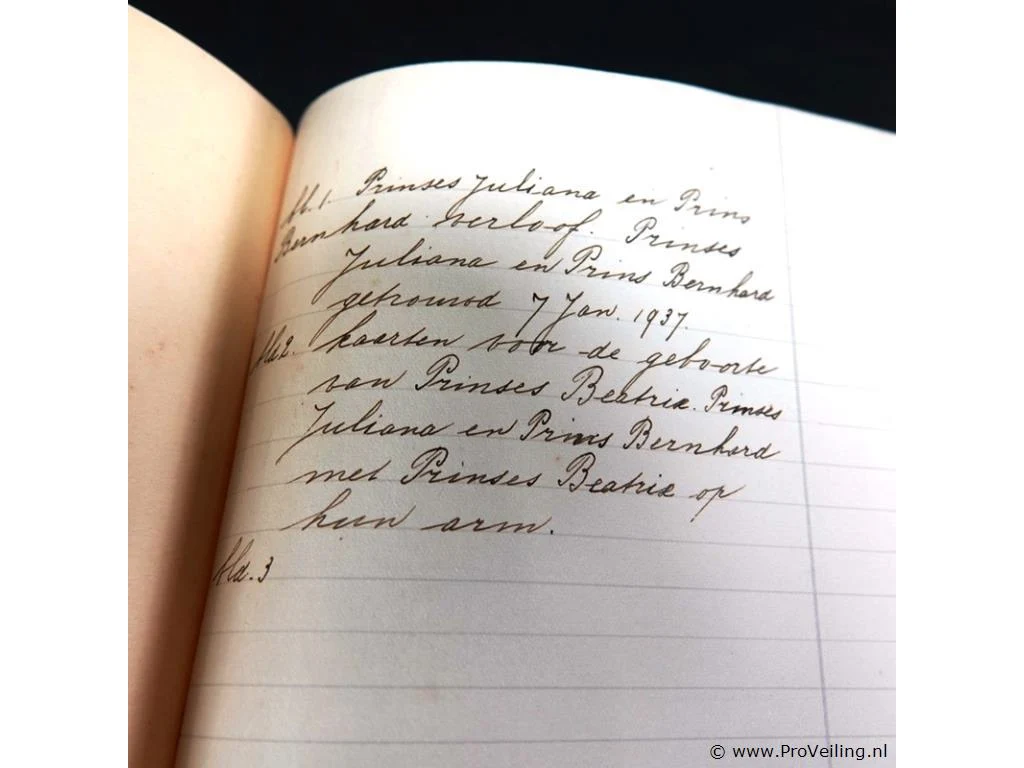 Bl. 1. Prinses Juliana en Prins
Bernhard verloof. Prinses
Juliana en Prins Bernhard
getrouwd 7 Jan. 1937.
Bld 2. kaarten voor de geboorte
van Prinses Beatrix. Prinses
Juliana en Prins Bernhard
met Prinses Beatrix op
hun arm.
Bld. 3
© www.ProVeiling.nl